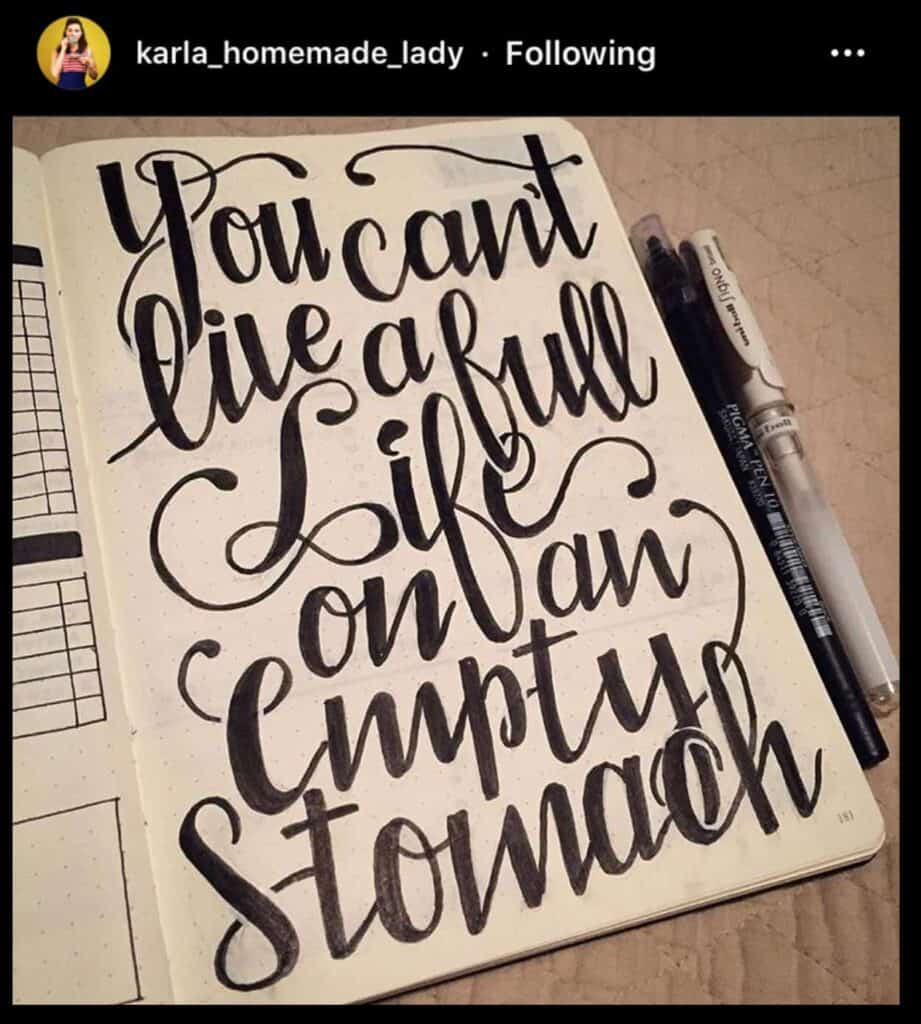 karla_homemade_lady · Following
You can't
live a full
Life
on an
Empty
Stomach
uni-ball SIGNO broad
PIGMA PEN 10
SAKURA JAPAN
183